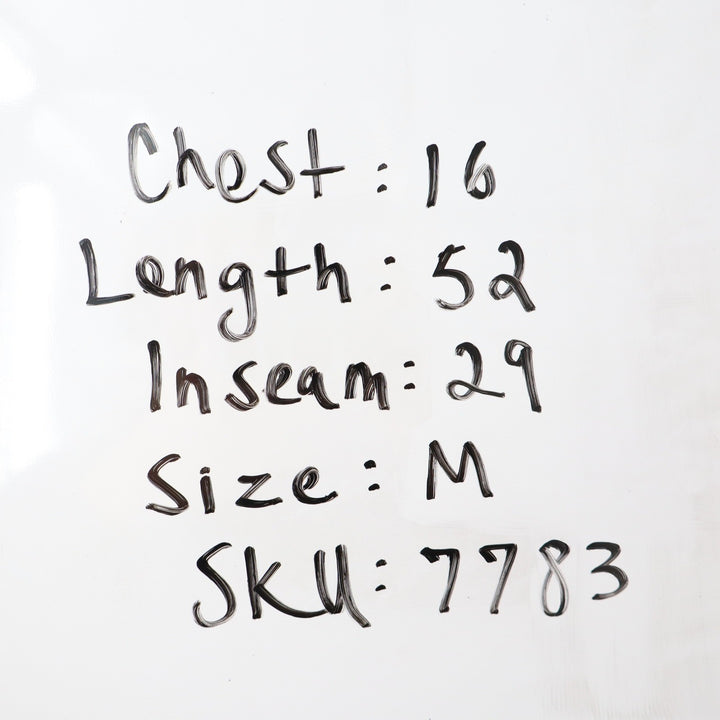 Chest: 16
Length: 52
Inseam: 29
Size: M
SKU: 7783